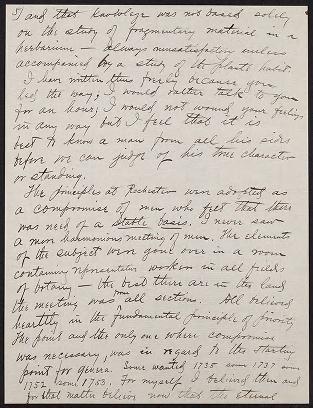 5) and that knowledge was not based solely
on the study of fragmentary material in a
herbarium — always unsatisfactory unless
accompanied by a study of the plants habit.
I have written thus freely because you
led the way; I would rather talk to you
for an hour; I would not wound your feelings
in any way but I feel that it is
best to know a man from all his sides
before we can judge of his true character
or standing.
The principles at Rochester were adopted as
a compromise of men who felt that there
was need of a stable basis. I never saw
a more harmonious meeting of men. The elements
of the subject were gone over in a room
containing representative workers in all fields
of botany — the best there are in the land
the meeting was from all sections. All believed
heartily in the fundamental principle of priority
The point and the only one where compromise
was necessary, was in regard to the starting
point for genera. Some wanted 1735 some 1737 some
1752 some 1753. For myself I believed then and
for that matter believe now that the eternal